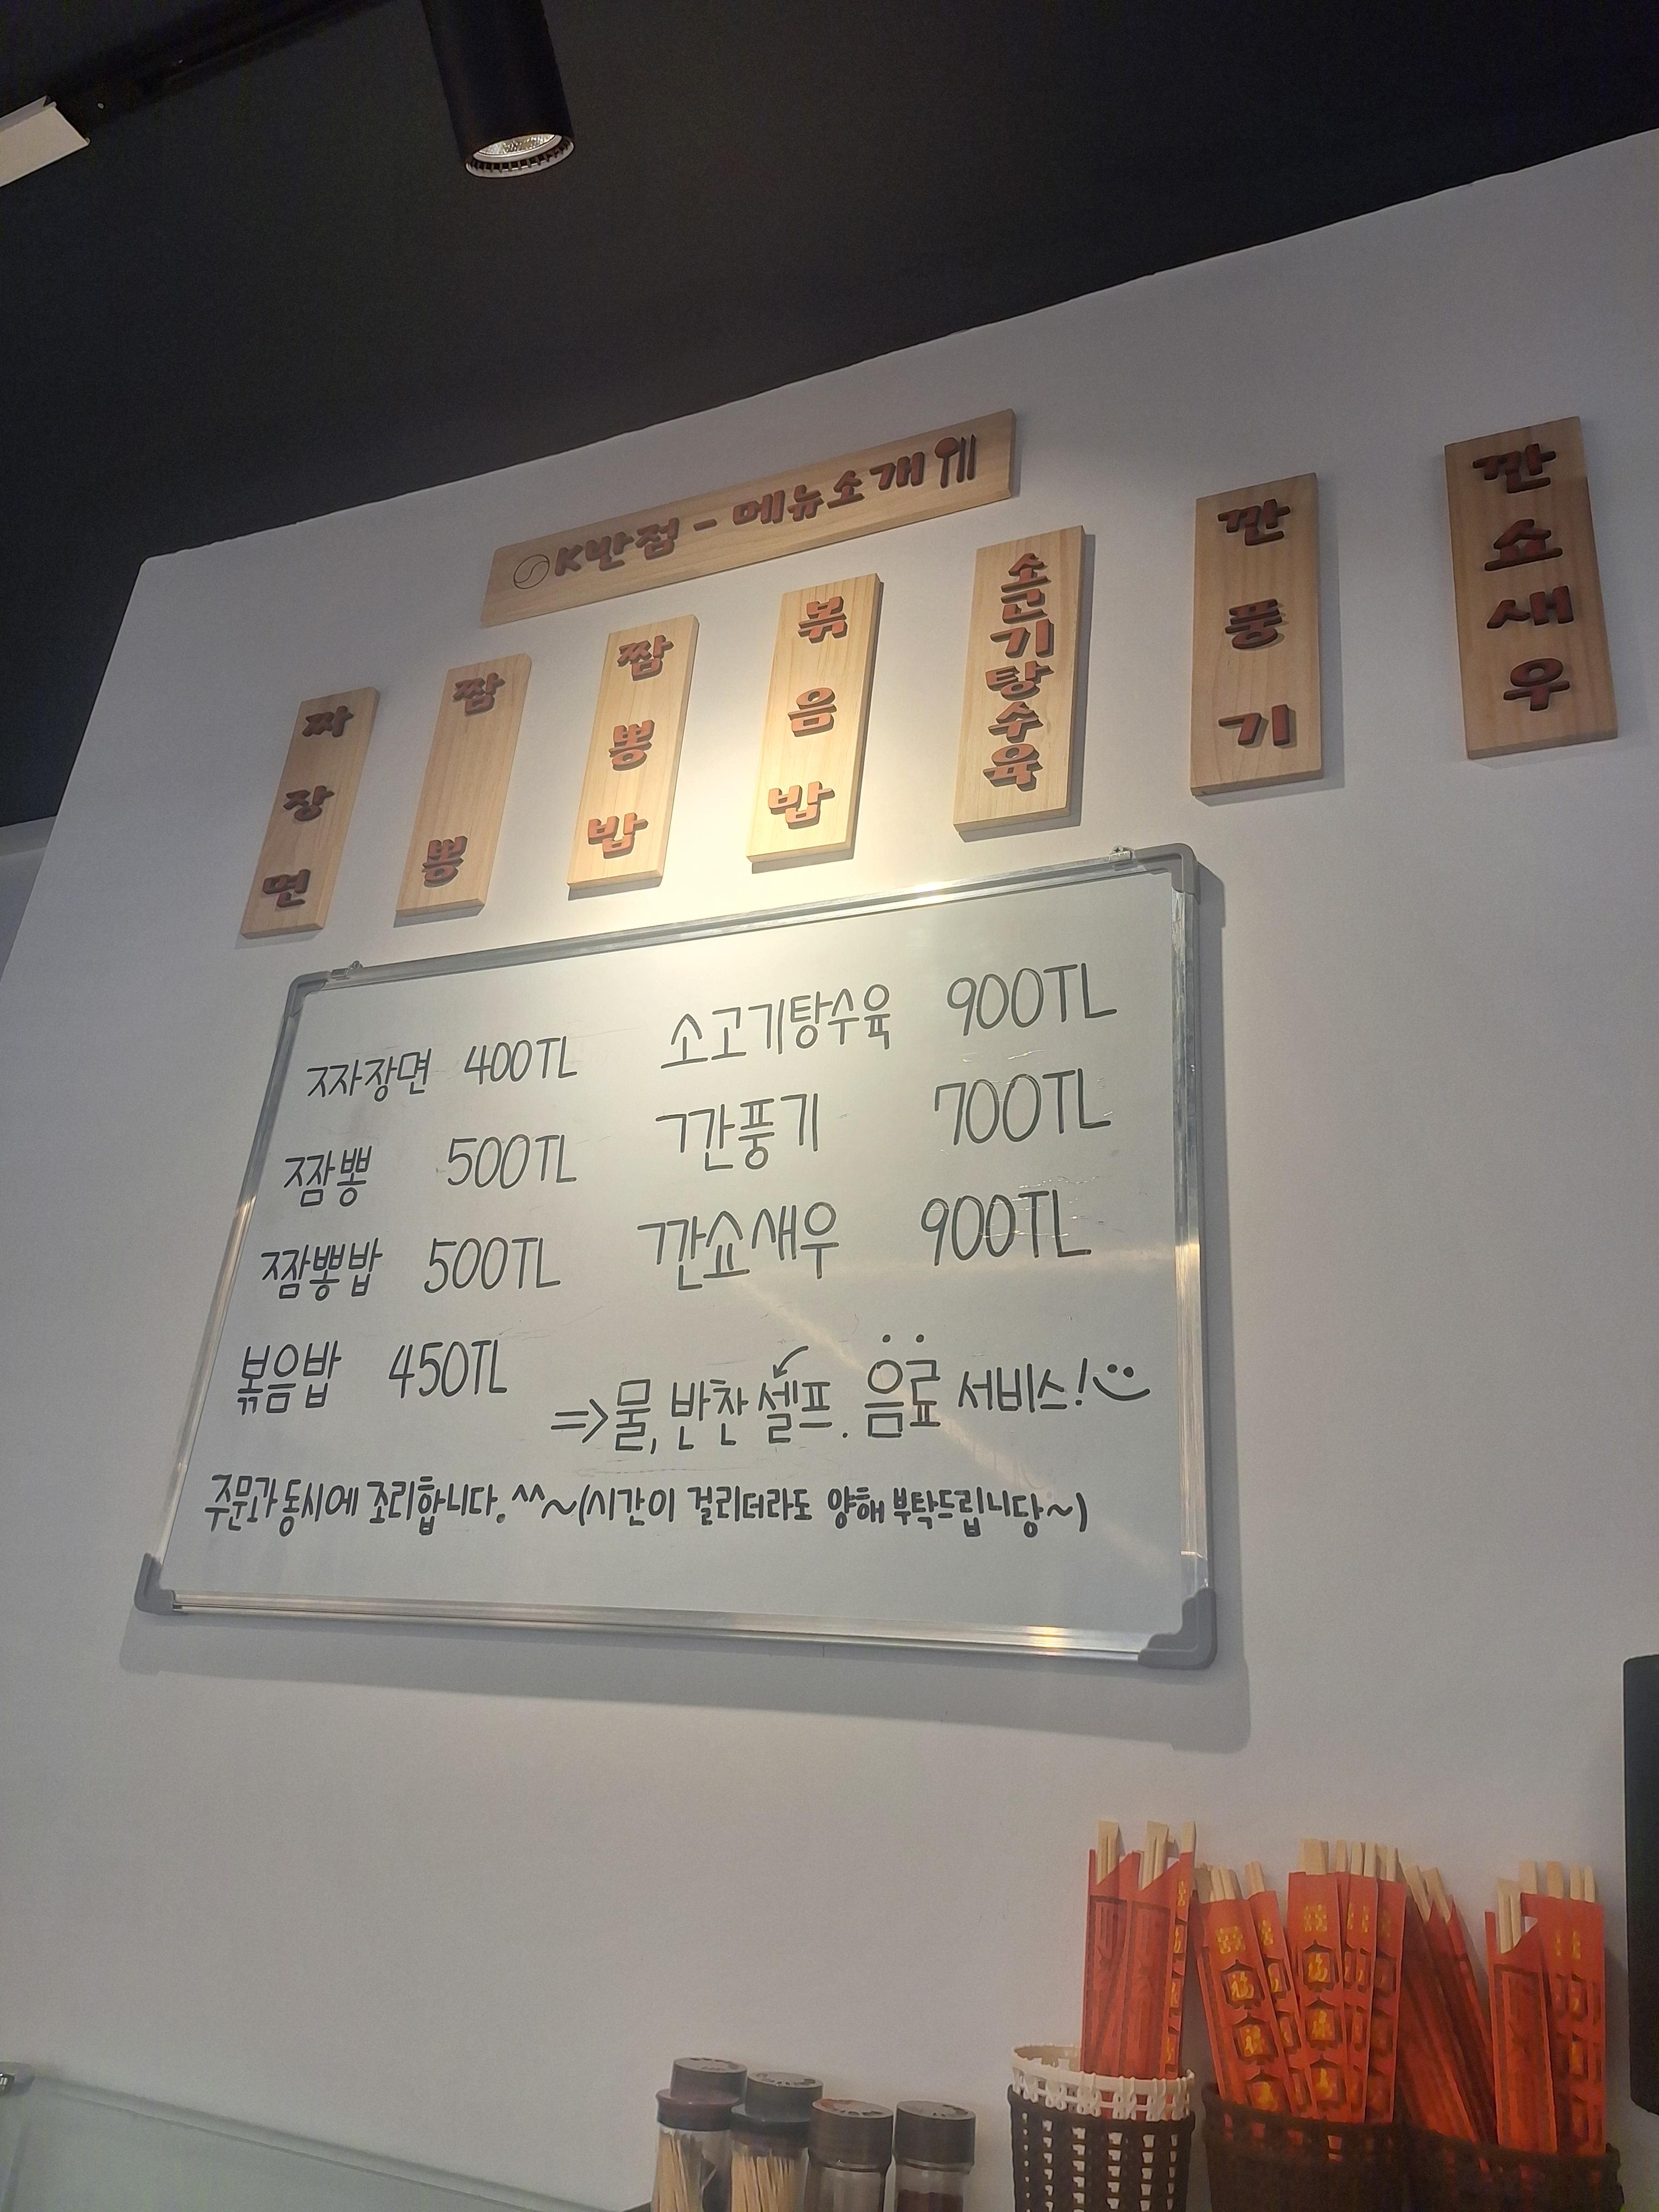 K반점 - 메뉴소개
짜장면
짬뽕
짬뽕밥
볶음밥
소고기탕수육
깐풍기
깐쇼새우
짜장면 400TL
짬뽕 500TL
짬뽕밥 500TL
볶음밥 450TL
소고기탕수육 900TL
깐풍기 700TL
깐쇼새우 900TL
=>물, 반찬 셀프. 음료 서비스!
주문과 동시에 조리합니다.^^~(시간이 걸리더라도 양해 부탁드립니당~)